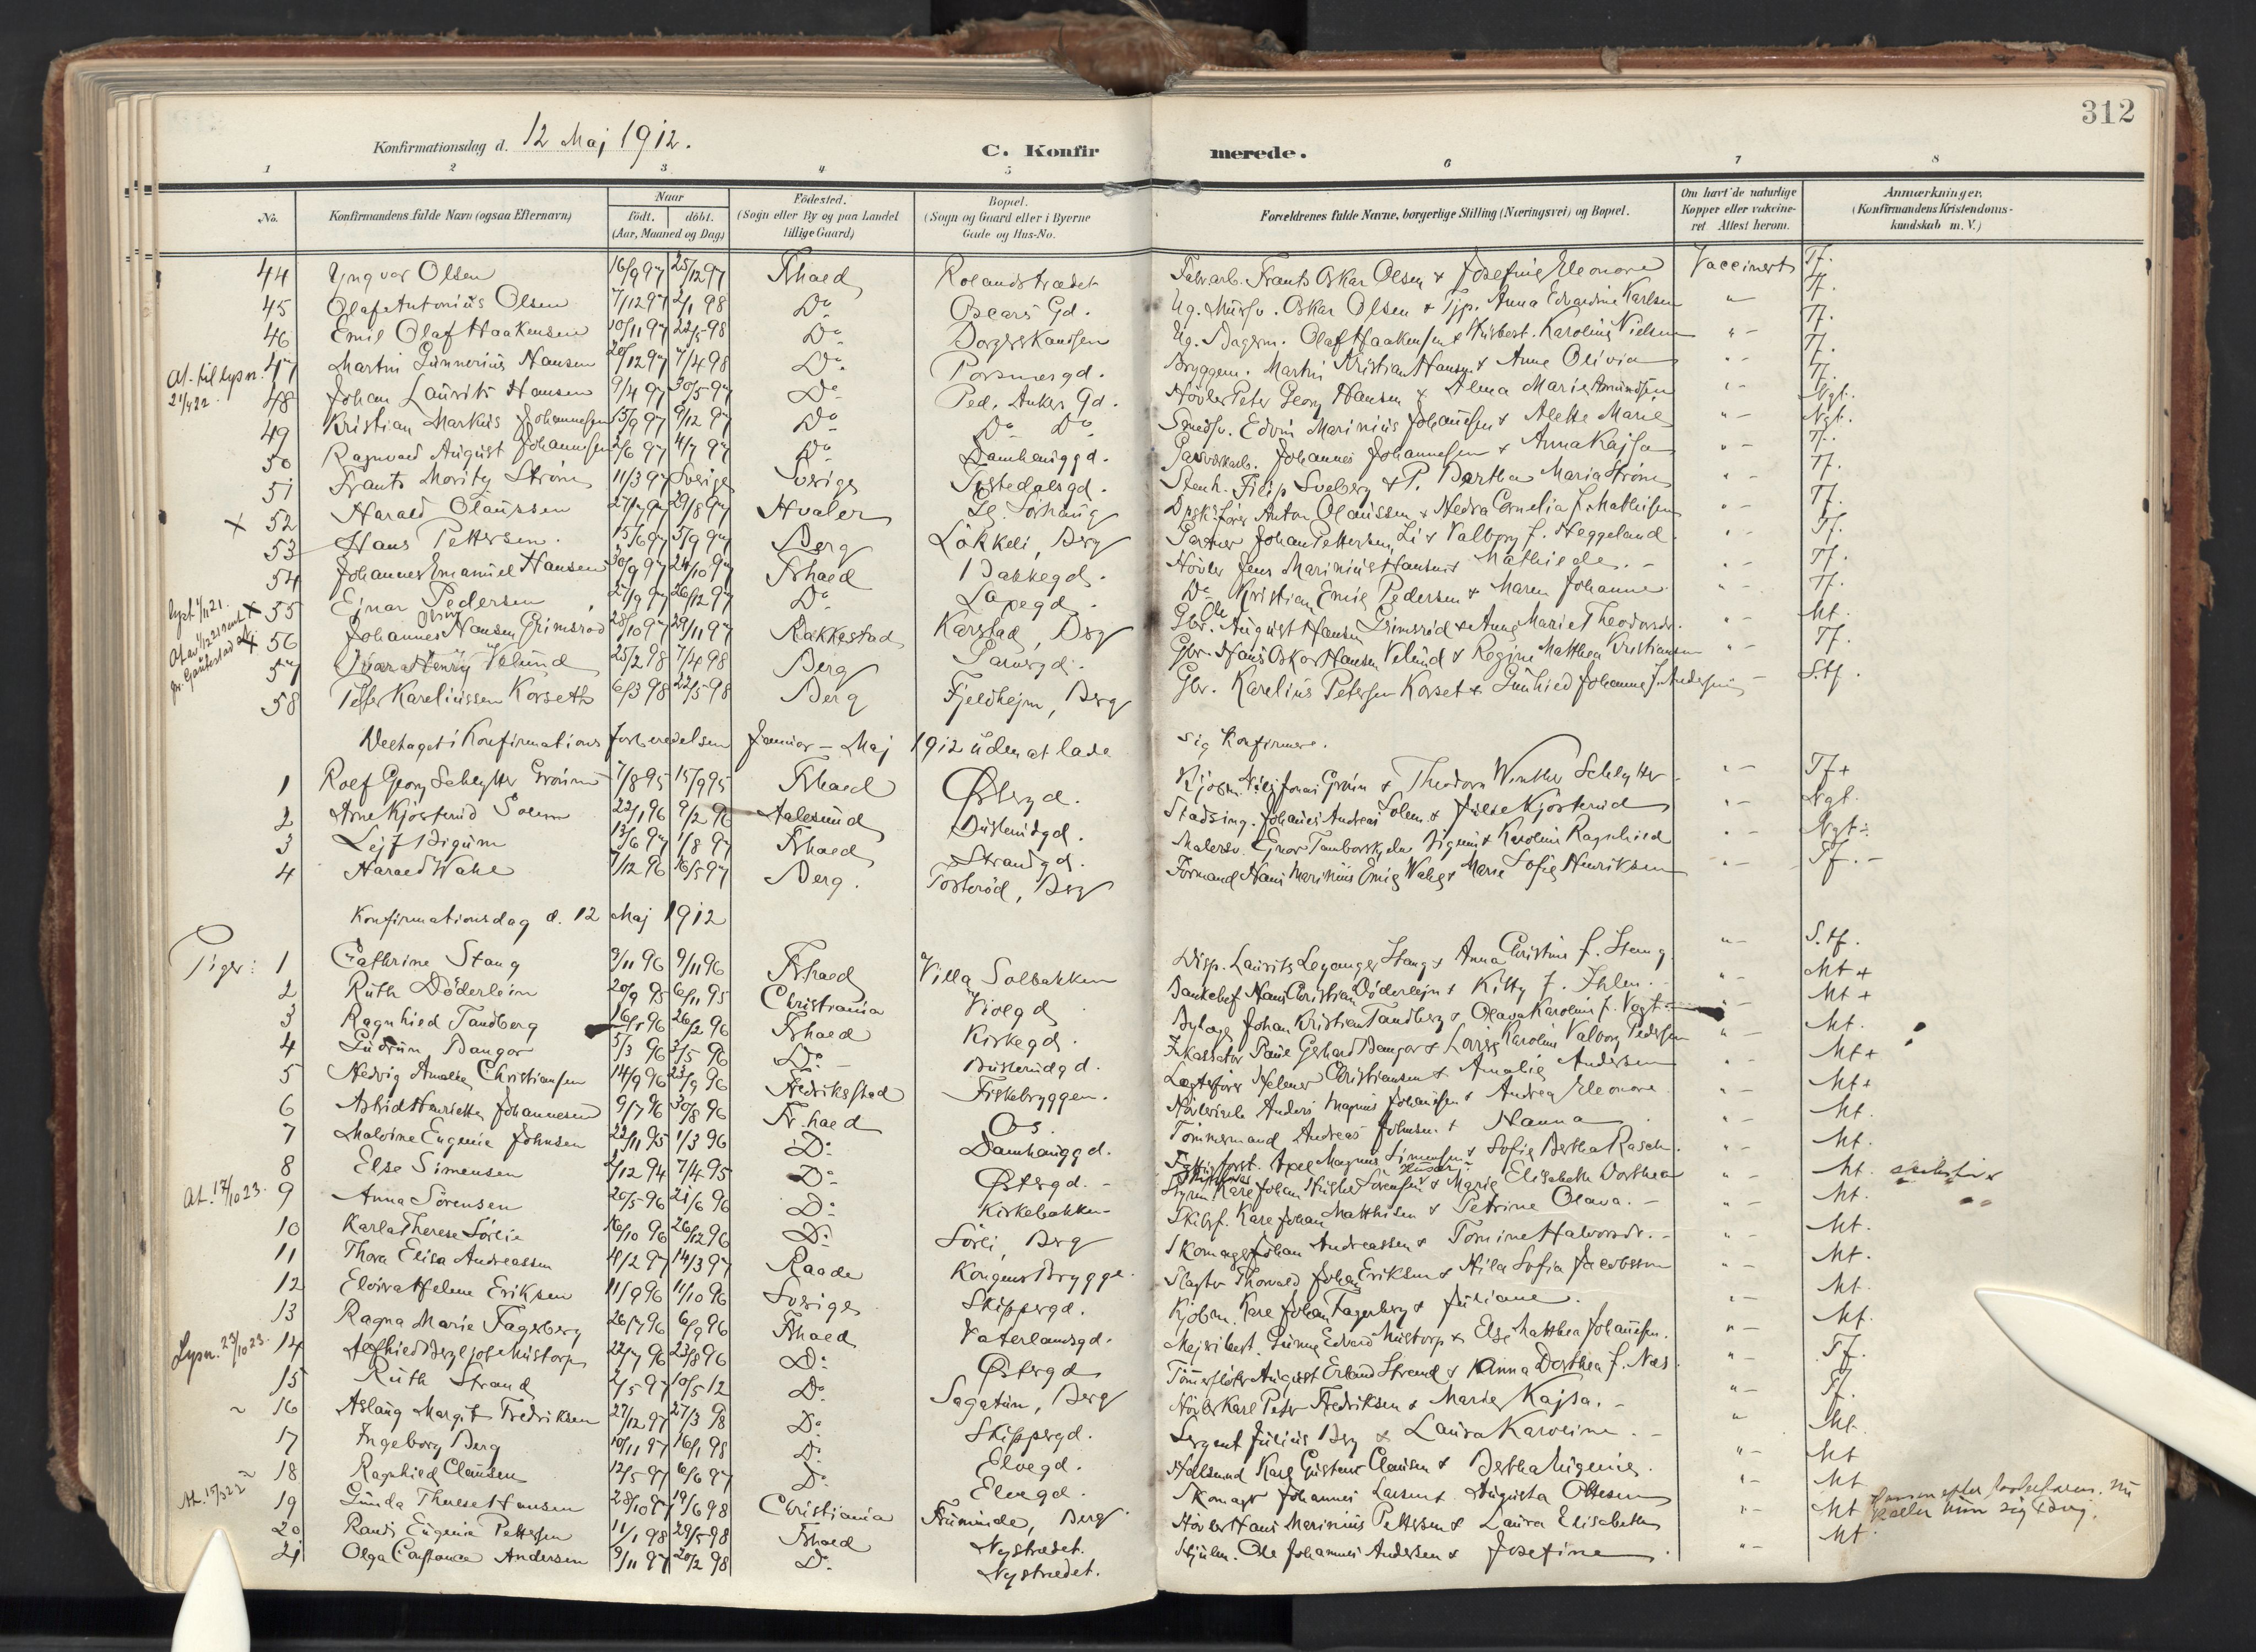 312
Konfirmationsdag d. 12 Maj 1912.
C. Konfirmerede.
1 2 3 4 5 6 7 8
No. Konfirmandens fulde Navn (ogsaa Efternavn) Naar født. døbt. (Aar, Maaned og Dag) Fødested. (Sogn eller By og paa Landet tillige Gaard) Bopæl. (Sogn og Gaard eller i Byerne Gade og Hus-No. Forældrenes fulde Navne, borgerlige Stilling (Næringsvei) og Bopæl. Om havt de naturlige Kopper eller vakcineret Attest herom. Anmærkninger, (Konfirmandens Kristendomskundskab m. V.)
44 Yngvar Olsen 16/9 97 25/12 97 Fr.hald Rolandstrædet Fabr.arb. Frants Oskar Olsen & Josefine Eleonore Vaccinert Tf.
45 Olaf Antonius Olsen 7/12 97 2/1 98 Do Oscars Gd. Ug. Mursv. Oskar Olsen & Tjp. Anna Edvardine Karlsen " - Tf.
46 Emil Olaf Haakensen 10/11 97 22/5 98 Do Borgerkandsen Ug. Bagerm. Olaf Haakensen & Husbest. Karoline Nielsen " - Tf.
At. til lysn. 21/4 22. 47 Martin Gunnerius Hansen 20/12 97 7/4 98 Do Porsnesgd. Bryggem. Martin Kristian Hansen & Anne Olivia " - Tf.
48 Johan Laurits Hansen 9/4 97 30/5 97 Do Ped. Ankers Gd. Høvler Peter Georg Hansen & Alma Marie Amundsen " - Tf.
49 Kristian Markus Johannesen 15/9 97 9/12 97 Do Do Do Smedsv. Edvin Marinius Johannesen & Alette Marie " - Ngt.
50 Ragnvald August Johannesen 2/6 97 4/7 97 Do Damhauggd. Gasværkarb. Johannes Johannesen & Anna Kajsa " - Ngt.
51 Frants Moritz Strøm 11/3 97 Sverige Sverige Tistedalsgd. Stenh. Filip Sveberg & P. Bertha Maria Strøm " - Tf.
x 52 Harald Olaussen 27/7 97 29/8 97 Hvaler Lg. Sørhaug Anton Olaussen & Hedva Cornelia f. Mathisen " - Tf.
53 Hans Pettersen. 15/6 97 5/9 97 Berg Løkkeli, Berg Gartner Johan Pettersen, Li & Valborg f. Heggeland " - Tf.
54 Johannes Emanuel Hansen 30/9 97 24/10 97 Fr.hald Bakkegd. Høvler Jens Marinius Hansen & Mathilde. - " - Tf.
lyst 4/11 21. x 55 Einar Pedersen 27/9 97 26/12 97 Do Lapegd. Do Kristian Emil Pedersen & Maren Johanne " - Tf.
56 Johannes Olsen Hansen Grimsrød 28/10 97 29/11 97 Rakkestad Karstad, Berg Gbr. Ole August Hansen Grimsrød & Anne Marie Theodorsdr. " - Mt.
57 Ivar Henry Velund 25/2 98 7/4 98 Berg Garvergd. Gbr. Hans Oskar Hansen Velund & Regine Matthea Kristiansen " - Tf.
58 Peter Kareliussen Korseth 6/3 98 22/5 98 Berg Fjeldhejm, Berg Gbr. Karelius Petersen Korset & Gunhild Johanne f. Andersen " - S.tf.
Deltaget i Konfirmations Forberedelsen Januar - Maj 1912 uden at lade sig konfirmere.
1 Rolf Georg Schlytter Grøinn 7/8 95 15/9 95 Fr.hald Østergd. Kjøbm. Nils Jonas Grøinn & Theodora Winther Schlytter " - Tf +
2 Arne Kjøsterud Solem 22/1 96 9/2 96 Aalesund Busterudgd. Stadsing. Johannes Andreas Solem & Julie Kjøsterud " - Ngt.
3 Leif Bigum 13/6 97 1/8 97 Fr.hald Strandgd. Malersv. Ejnar Tamborskjelv Bigum & Karoline Ragnhild " - Ngt.
4 Harald Wahl 7/12 96 16/5 97 Berg. Torterød, Berg Formand Hans Marinius Emil Wahl & Marie Sofie Henriksen " - Tf. -
Konfirmationsdag d. 12 Maj 1912
Piger: 1 Cathrine Stang 3/11 96 9/11 96 Fr.hald Villa Solbakken Disp. Laurits Leganger Stang & Anna Christine f. Stang " - S.tf.
2 Ruth Döderlein 20/9 95 6/11 95 Christiania Violgd Bankchef Hans Christian Döderlejn & Kitty f. Ihlen. " - Mt +
3 Ragnhild Tandberg 16/1 96 26/2 96 Fr.hald Kirkegd. Bylæge Johan Kristian Tandberg & Olava Karoline f. Vogt " - Mt +
4 Gudrun Bangor 5/3 96 3/5 96 Do - Busterudgd. Inkassator Paul Gerhard Bangor & Lovise Karoline Valborg Pedersen " - Mt.
5 Hedvig Amalie Christiansen 14/9 96 23/9 96 Fredriksstad Fiskebryggen. Lægterfører Helmer Christiansen & Amalie Andersen " - Mt +
6 Astrid Henriette Johannesen 9/7 96 30/8 96 Fr.hald Os. Anders Magnus Johannesen & Andrea Eleonore " - Mt +
7 Malvine Eugenie Johnsen 22/11 95 1/3 96 Do Damhauggd. Tømmermand Andreas Johnsen & Hanna " - Mt.
8 Else Simensen 2/12 94 7/4 95 Do Østergd. - Axel Magnus Simensen & Sofie Bertha Rasch. " - Mt.
At. 17/10 23. 9 Anna Sørensen 20/5 96 21/6 96 Do Kirkebakken Styrm. Karl Johan Sørensen & Marie Elisabeth Dorthea " - Mt.
10 Karla Therese Sørlie 16/10 96 26/12 96 Do Sørli, Berg Skibsf. Karl Johan Matthisen & Petrine Olava. - " - Mt.
11 Thora Elisa Andreassen 4/2 97 14/3 97 Raade Kongens Brygge. Skomager Johan Andreassen & Tomine Halvorsdr. - " - Mt.
12 Elvira Helene Eriksen 11/9 96 11/10 96 Sverige Skippergd. Slagter Thorvald Johan Eriksen & Hilda Sofia Jacobsson " - Mt.
13 Ragna Marie Fagerberg 26/7 96 6/9 96 Fr.hald Vaterlandsgd. Kjøbm. Karl Johan Fagerberg & Juliane. " - Mt.
Lysn. 23/10 23. 14 Alfhild Bergljot Mustorp 22/7 96 23/8 96 Do Østergd Mejeribest. Gunnar Edvard Mustorp & Else Matthea Johannesen. " - Mt.
15 Ruth Strand 2/5 97 10/5 12 Do Sagatun, Berg Tømmerfløter August Erland Strand & Anna Dorthea f. Næs. " - Tf.
16 Aslaug Margit Fredriksen 27/12 97 27/3 98 Do Skippergd. Høvler Karl Peter Fredriksen & Marie Kajsa. - " - Tf.
17 Ingeborg Berg 10/11 97 16/1 98 Do Elvegd. Sergent Julius Berg & Laura Karoline. - " Mt.
18 Ragnhild Clausen 12/5 97 6/6 97 Do Elvegd. Karl Gustav Clausen & Bertha Eugenie. " - Mt
At. 15/3 22 19 Gunda Therese Hansen 28/10 97 19/6 98 Christiania Fruminde, Berg Skomager Johannes Larsen & Augusta Olsen " - Mt
20 Randi Eugenie Pettersen 11/1 98 29/5 98 Fr.hald Nystrædet. Høvler Hans Marinius Pettersen & Laura Elisabeth " - Mt
21 Olga Constance Andersen 9/11 97 20/2 98 Do Nystrædet. Ole Johannes Andersen & Josefine " - Mt